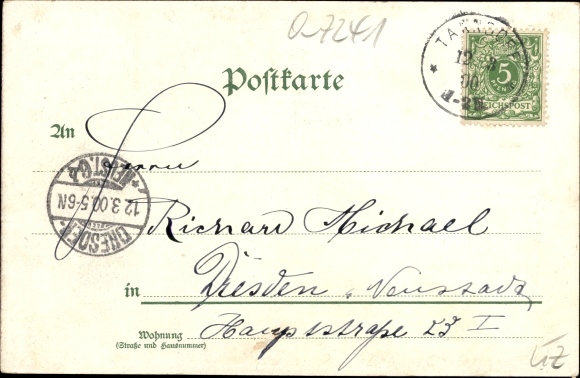 0-7241
Postkarte
12 3
00
5
REICHSPOST
An
Herrn
DRESDEN
12.3.00.5-6N
NEUST. 6a
Richard Michael
in Dresden-Neustadt
Wohnung Hauptstraße 23 I
(Straße und Hausnummer)